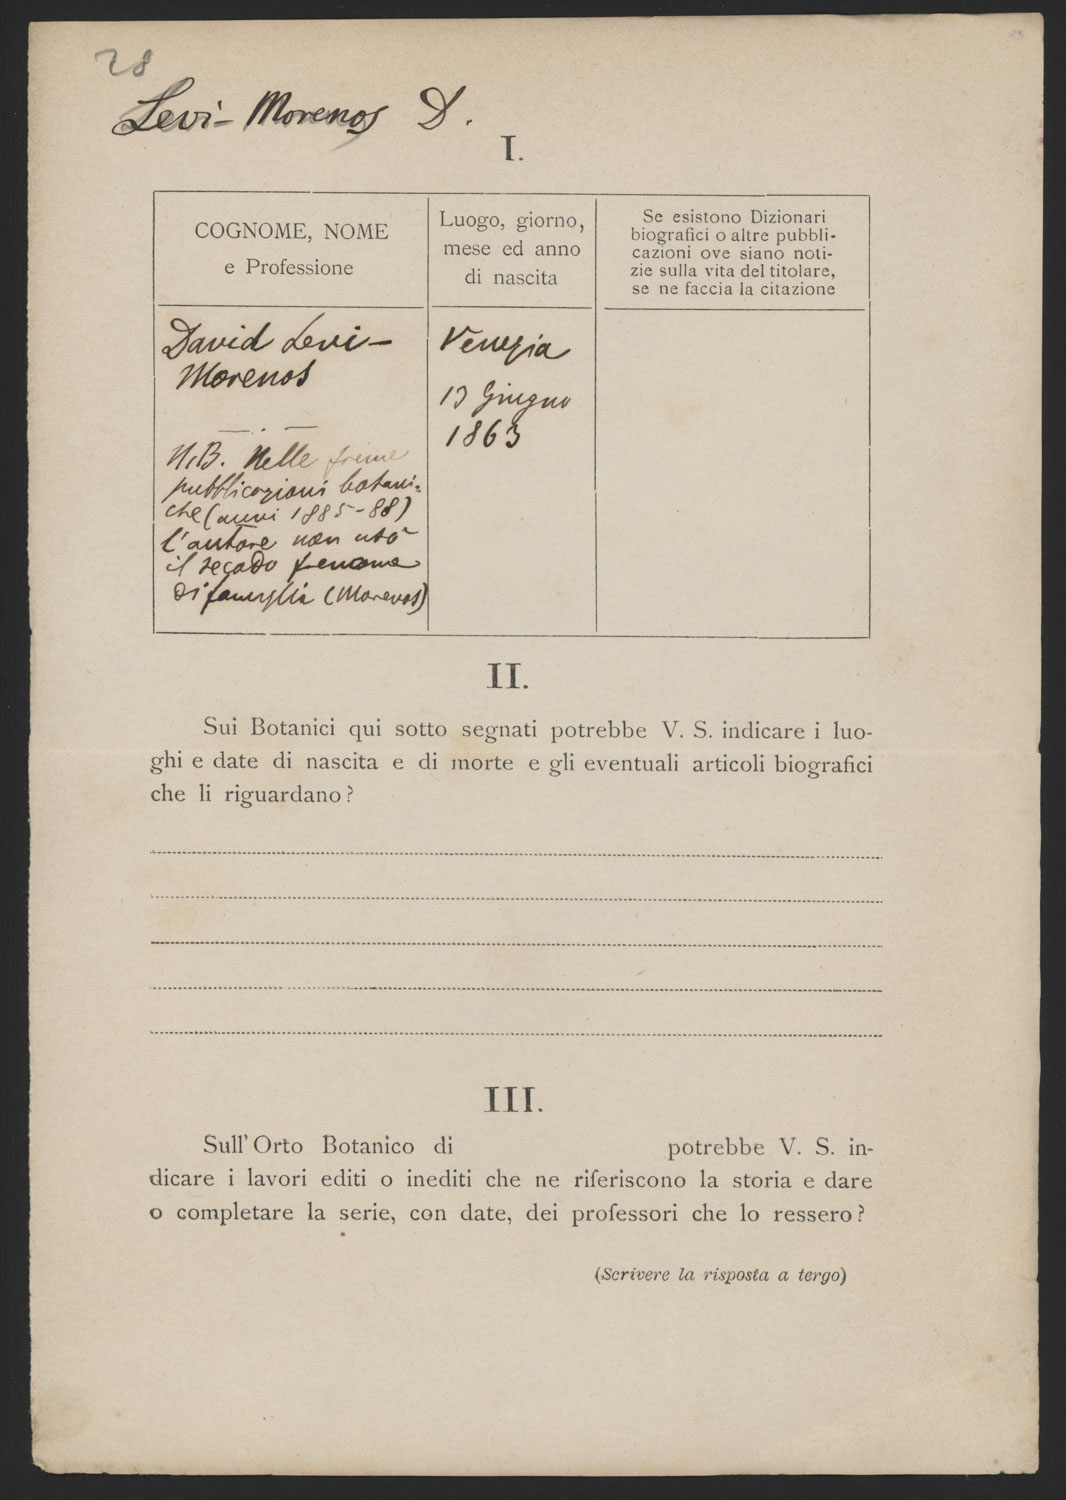 28
Levi-Morenos D.
I.
COGNOME, NOME
e Professione
Luogo, giorno,
mese ed anno
di nascita
Se esistono Dizionari
biografici o altre pubbli-
cazioni ove siano noti-
zie sulla vita del titolare,
se ne faccia la citazione
David Levi-
Morenos
N.B. Nelle prime
pubblicazioni botani=
che (anni 1885-88)
l'autore non usò
il secodo
di famiglia (Morenos)
Venezia
13 Giugno
1863
II.
Sui Botanici qui sotto segnati potrebbe V. S. indicare i luo-
ghi e date di nascita e di morte e gli eventuali articoli biografici
che li riguardano?
III.
Sull'Orto Botanico di potrebbe V. S. in-
dicare i lavori editi o inediti che ne riferiscono la storia e dare
o completare la serie, con date, dei professori che lo ressero?
(Scrivere la risposta a tergo)